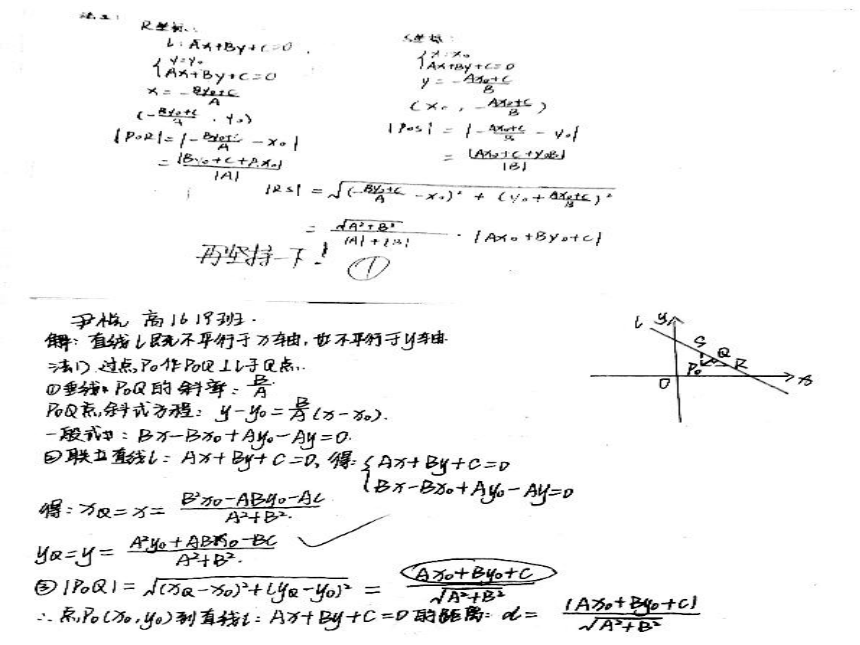 法二:
R坐标: S坐标:
l: Ax+By+C=0.
{ y=y₀ { x=x₀
Ax+By+C=0 Ax+By+C=0
x = -(By₀+C)/A y = -(Ax₀+C)/B
(-(By₀+C)/A , y₀) (x₀, -(Ax₀+C)/B)
|P₀R| = |-(By₀+C)/A - x₀| |P₀S| = |-(Ax₀+C)/B - y₀|
= |By₀+C+Ax₀|/|A| = |Ax₀+C+y₀B|/|B|
|RS| = √((-(By₀+C)/A - x₀)² + (y₀+(Ax₀+C)/B)²)
= √(A²+B²)/(|A|+|B|) · |Ax₀+By₀+C|
再坚持一下! ①
高1619班.
解: 直线l既不平行于x轴,也不平行于y轴
法1) 过点P₀作P₀Q⊥l于Q点.
①垂线P₀Q的斜率: B/A
P₀Q点斜式方程: y-y₀=B/A(x-x₀).
一般式: Bx-Bx₀+Ay₀-Ay=0.
②联立直线l: Ax+By+C=0, 得: { Ax+By+C=0
Bx-Bx₀+Ay₀-Ay=0
得: x_Q=x= (B²x₀-ABy₀-AC)/(A²+B²).
y_Q=y= (A²y₀+ABx₀-BC)/(A²+B²).
③|P₀Q|=√((x_Q-x₀)²+(y_Q-y₀)²) = (Ax₀+By₀+C)/√(A²+B²)
∴点P₀(x₀,y₀)到直线l: Ax+By+C=0的距离: d= |Ax₀+By₀+C|/√(A²+B²)
l y
S Q
P₀ R
O x